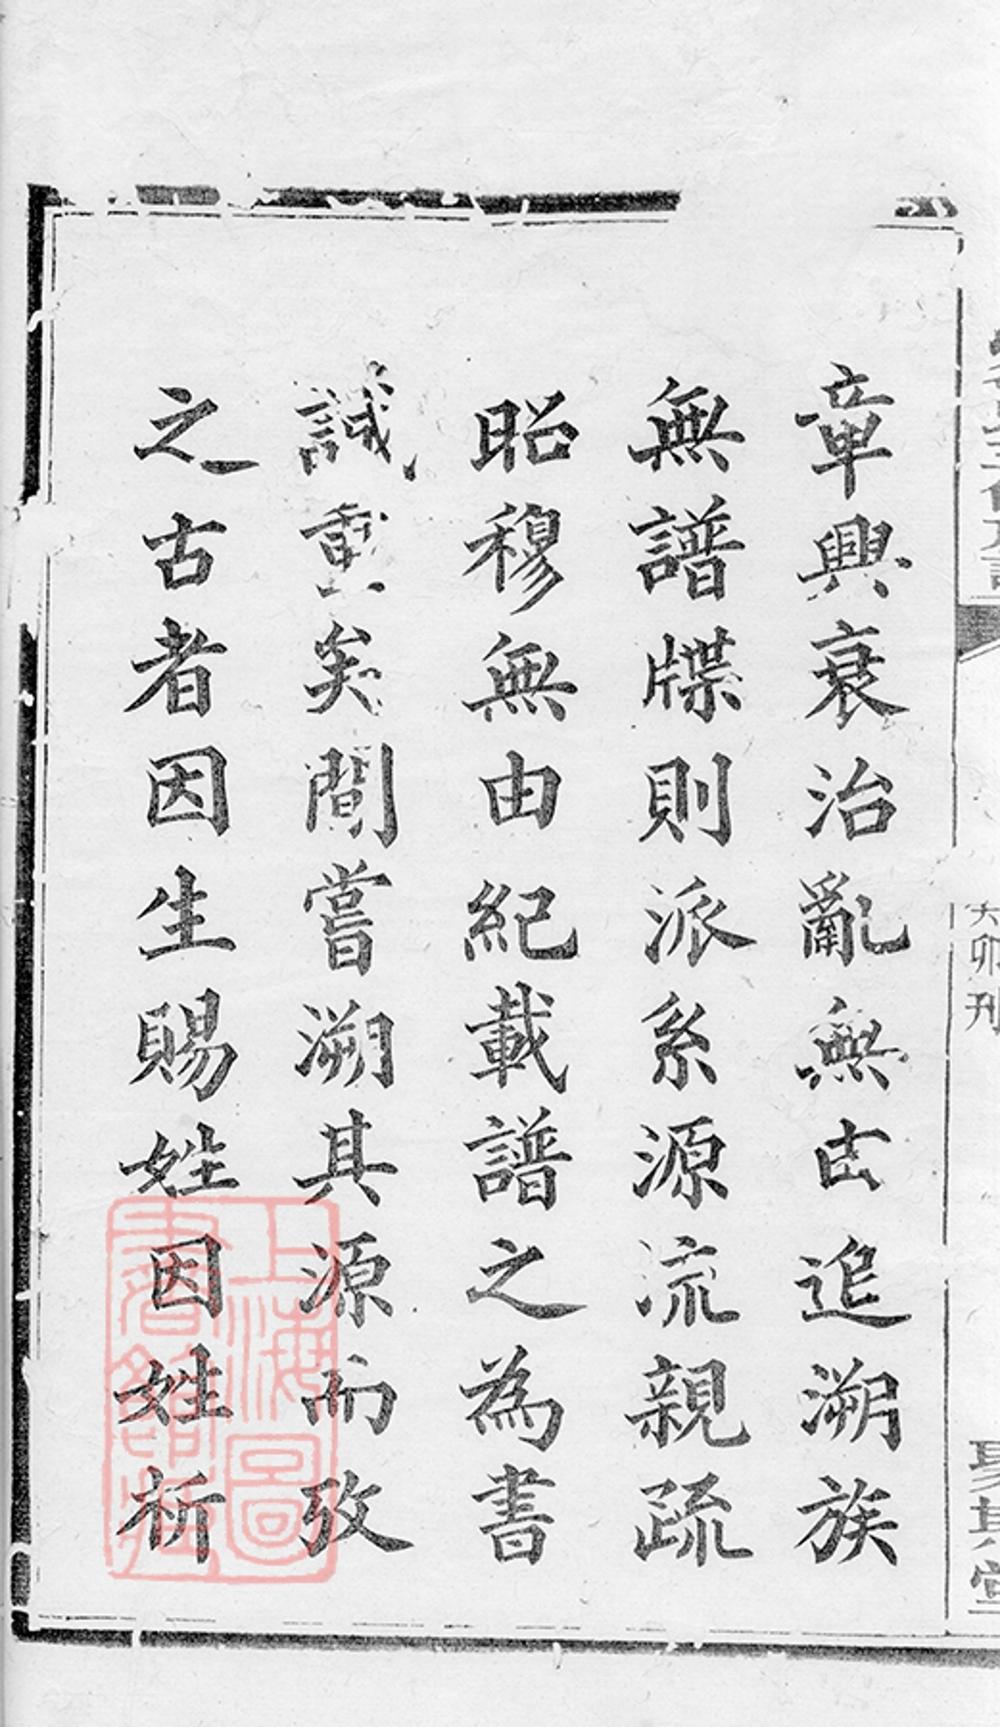 癸卯刋
聚其堂
章興衰治亂無由追溯族
無譜牒則派系源流親疏
昭穆無由紀載譜之為書
誠重矣間嘗溯其源而攷
之古者因生賜姓因姓析
上海圖書館藏